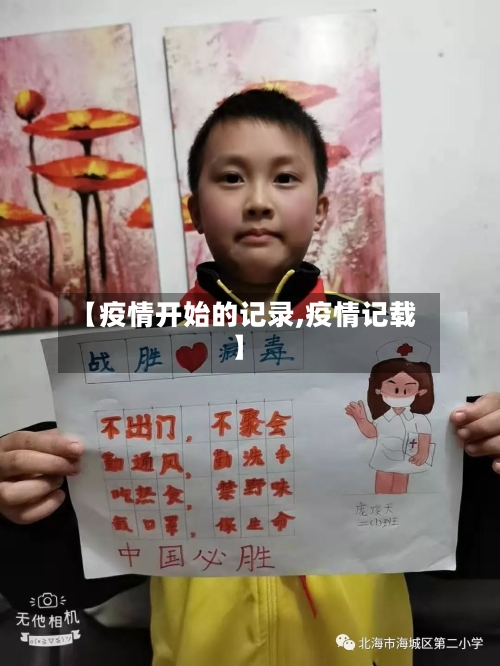 【疫情开始的记录,疫情记载
】
战胜❤病毒
不出门，不聚会
勤通风，勤洗手
吃热食，禁野味
戴口罩，保生命
中国必胜
二(1)班
无他相机
北海市海城区第二小学